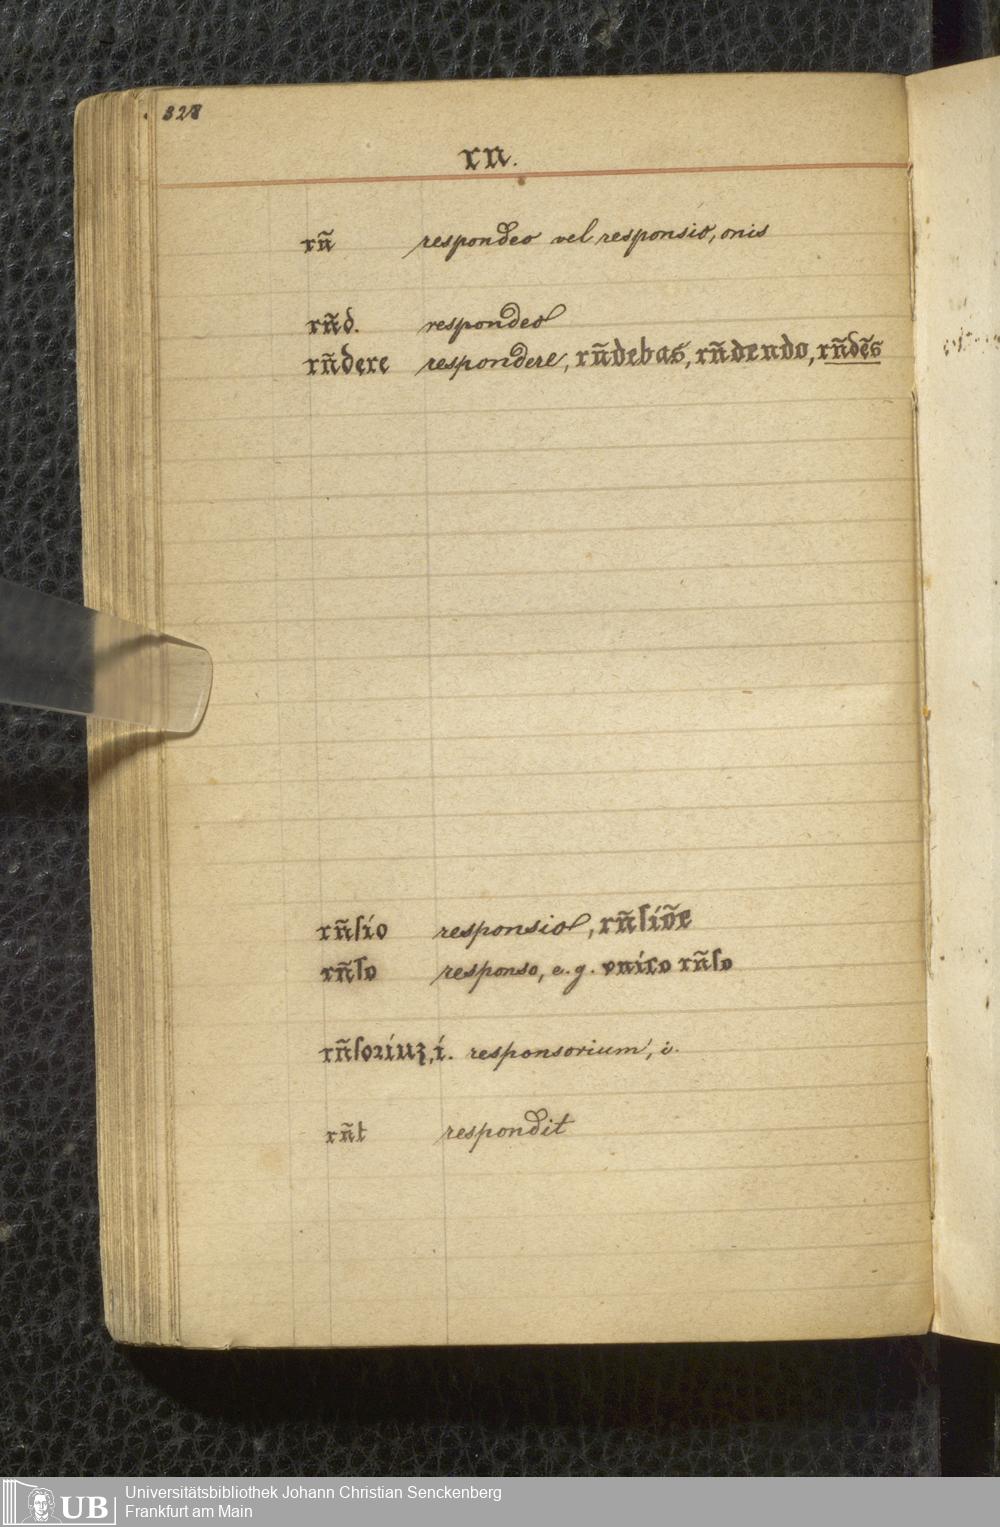 328
rn.
rñ respondeo vel responsio, onis
rñd. respondeo
rñdere respondere, rñdebas, rñdendo, rñdẽs
rñſio responsio, rñſiõe
rñſo responso, e. g. vnico rñſo
rñſoꝛiuz, i. responsorium, i.
rñt respondit
UB
Universitätsbibliothek Johann Christian Senckenberg
Frankfurt am Main